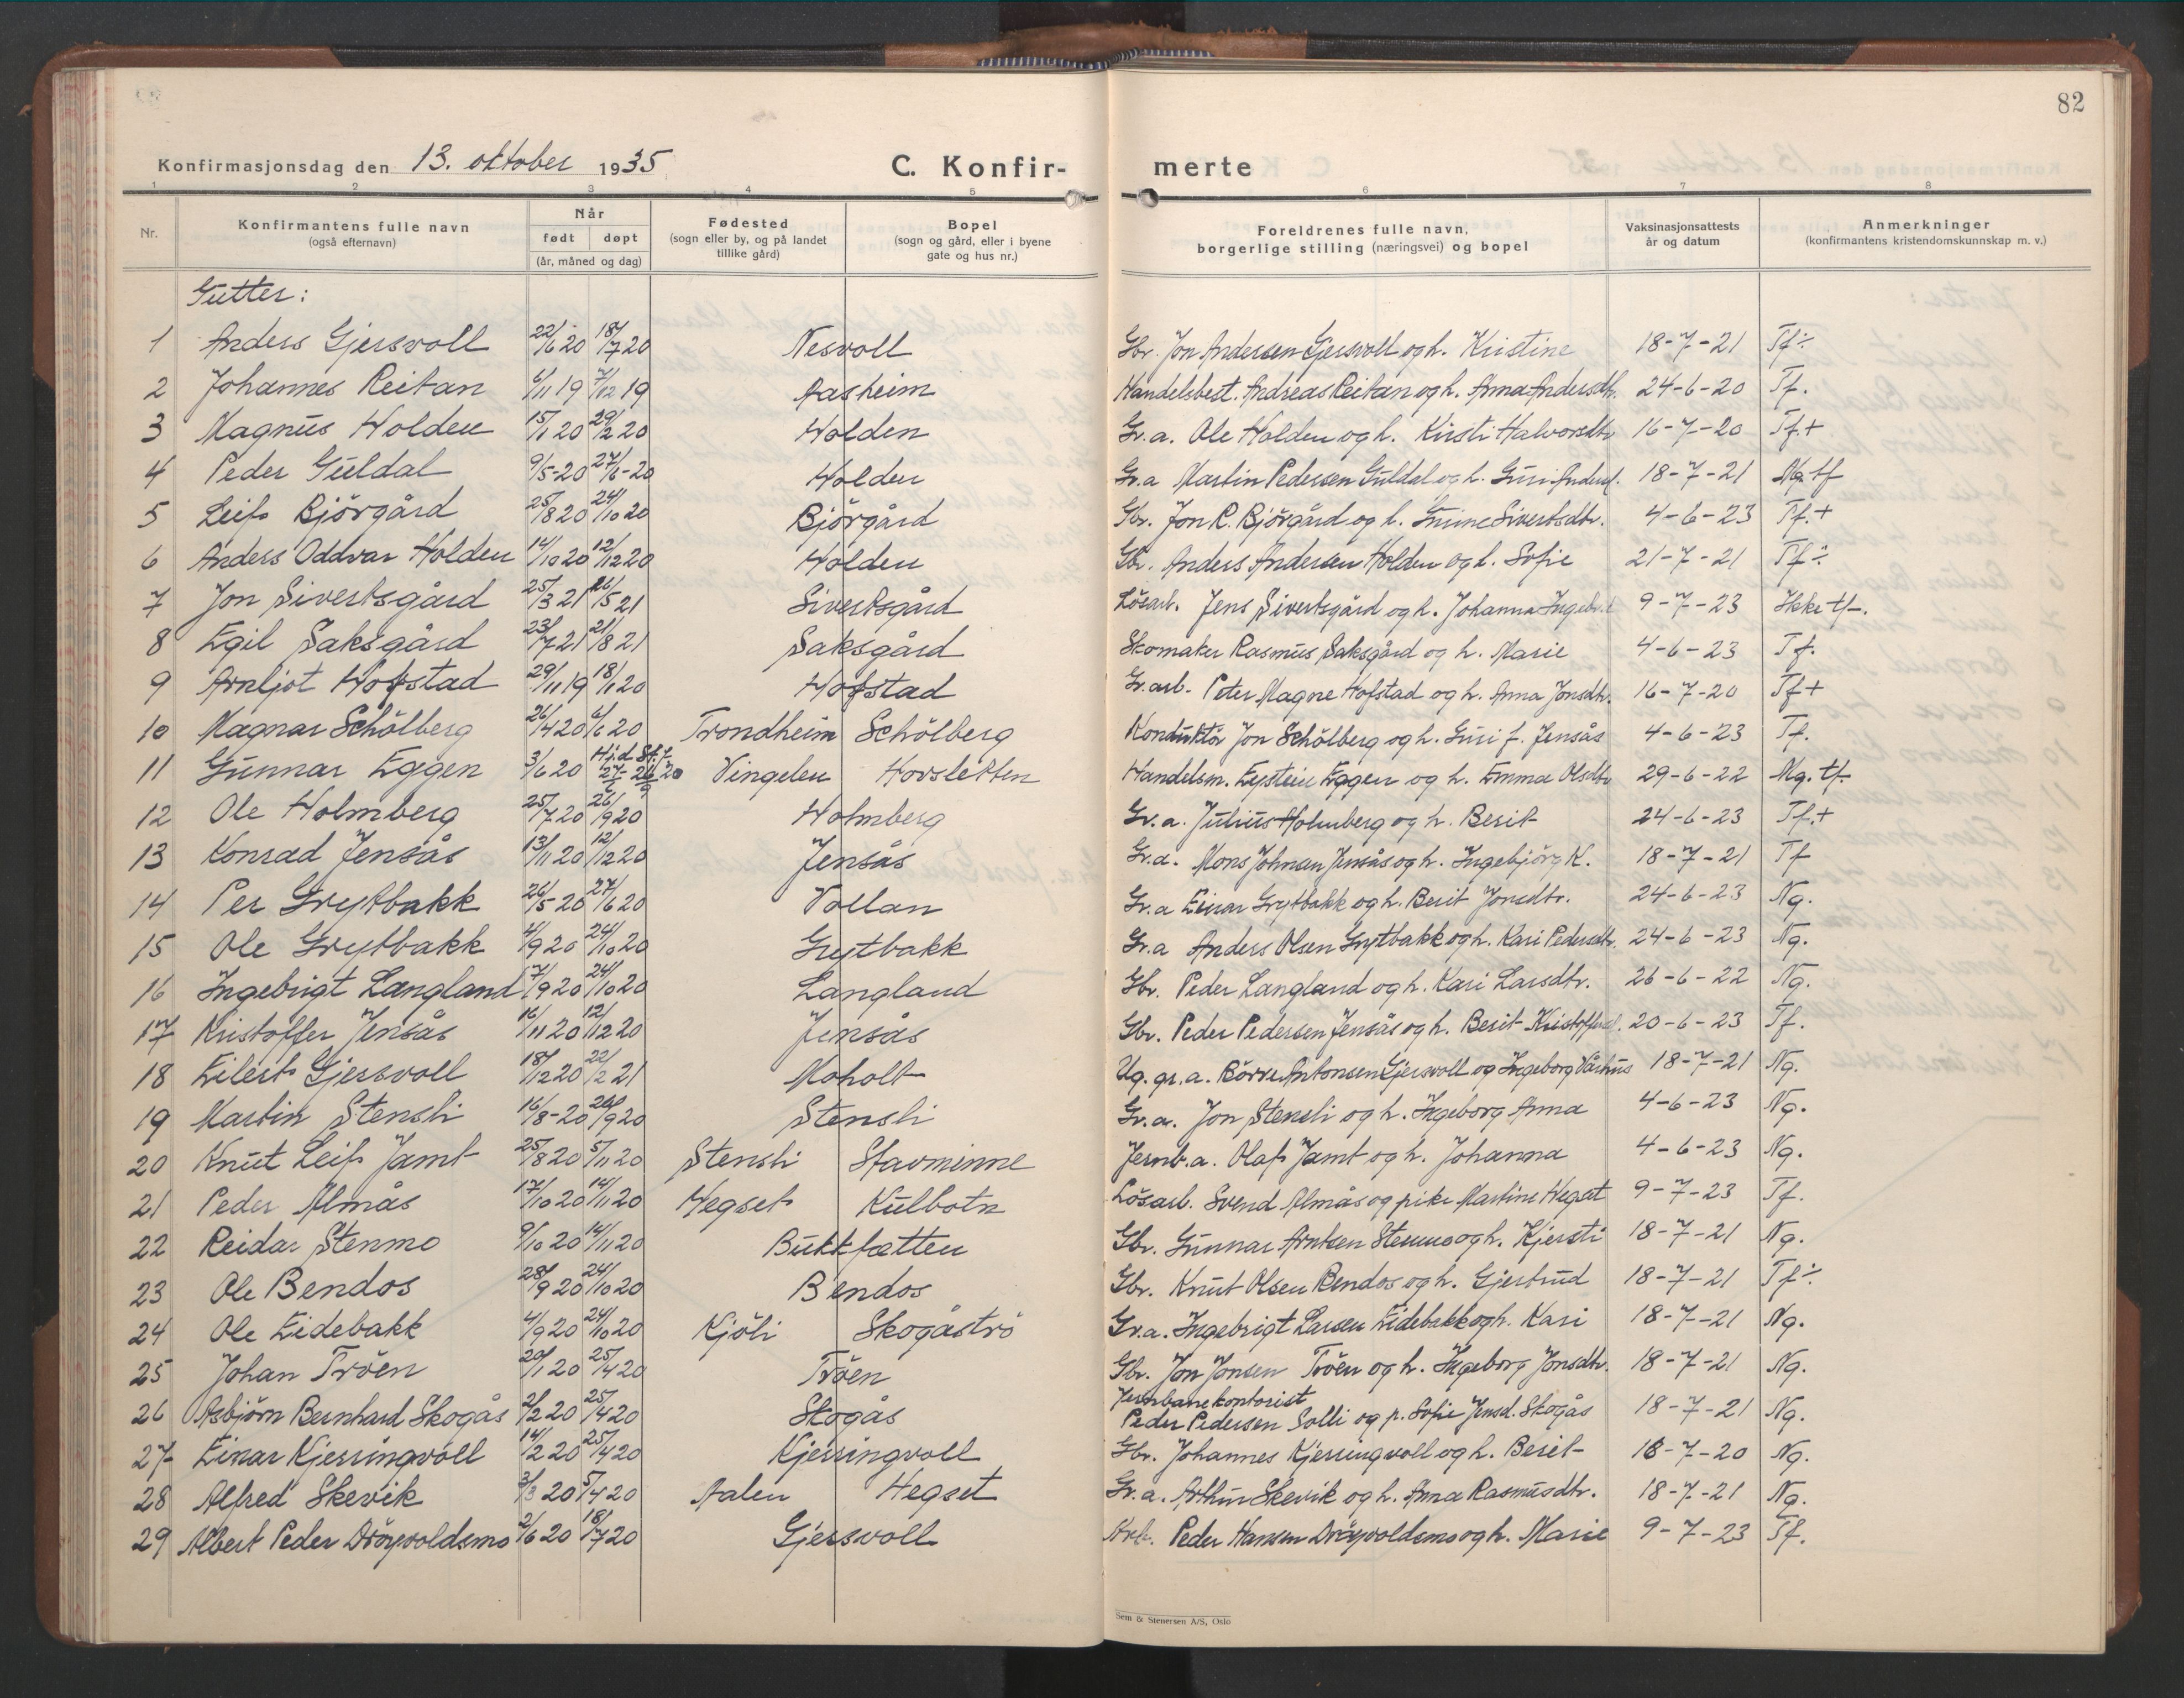 82
Konfirmasjonsdag den 13. oktober 1935 C. Konfir- merte
1 2 3 4 5 6 7 8
Nr. Konfirmantens fulle navn (også efternavn) Når født døpt (år, måned og dag) Fødested (sogn eller by, og på landet tillike gård) Bopel (sogn og gård, eller i byene gate og hus nr.) Foreldrenes fulle navn, borgerlige stilling (næringsvei) og bopel Vaksinasjonsattests år og datum Anmerkninger (konfirmantens kristendomskunnskap m. v.)
Gutter:
1 Anders Gjersvoll 22/6 20 18/7 20 Nesvoll Gbr. Jon Andersen Gjersvoll og h. Kristine 18-7-21 Tf÷
2 Johannes Reitan 6/11 19 7/12 19 Aasheim Handelsbest. Andreas Reitan og h. Anna Andersdtr. 24-6-20 Tf.
3 Magnus Holden 15/1 20 29/2 20 Holden Gr.a. Ole Holden og h. Kirsti Halvorsdtr 16-7-20 Tf.+
4 Peder Guldal 9/5-20 27/6-20 Holden Gr.a Martin Pedersen Guldal og h. Guri Andersd. 18-7-21 Mg. tf
5 Leif Bjørgård 25/8 20 24/10 20 Bjørgård Gbr. Jon R. Bjørgård og h. Gurine Sivertsdtr. 4-6-23 Tf.+
6 Anders Oddvar Holden 14/10 20 12/12 20 Holden Gbr. Anders Andersen Holden og h. Sofie 21-7-21 Tf÷
7 Jon Sivertsgård 25/3 21 26/5 21 Sivertsgård Løsarb. Jens Sivertsgård og h. Johanna 9-7-23 Ikke tf.
8 Egil Saksgård 23/7 21 21/8 21 Saksgård Skomaker Rasmus Saksgård og h. Marie 4-6-23 Tf.
9 Arnljot Hofstad 29/11 19 18/1 20 Hofstad Gr.arb. Peter Magne Hofstad og h. Anna Jonsdtr. 16-7-20 Tf+
10 Magnar Schølberg 26/4 20 6/6 20 Trondheim Schølberg Konduktør Jon Schølberg og h. Guri f. Jensås 4-6-23 Tf.
11 Gunnar Eggen 3/6 20 Hj.d. St.f. 27/6 - 26/9 20 Vingelen Hovsletten Handelsm. Eystein Eggen og h. Emma Olsdtr 29-6-22 Mg. tf.
12 Ole Holmberg 25/7 20 26/9 20 Holmberg Gr.a. Julius Holmberg og h. Berit 24-6-23 Tf.+
13 Konrad Jensås 13/11 20 12/12 20 Jensås Gr.a. Mons Johnsen Jensås og h. Ingebjørg K. 18-7-21 Tf
14 Per Grytbakk 26/5 20 27/6 20 Vollan Gr.a Einar Grytbakk og h. Berit Jonsdtr. 24-6-23 Ng.
15 Ole Grytbakk 4/9 20 24/10 20 Grytbakk Gr.a Anders Olsen Grytbakk og h. Kari Pedersdtr. 24-6-23 Ng.
16 Ingebrigt Langland 17/9 20 24/10 20 Langland Gbr. Peder Langland og h. Kari Larsdtr. 26-6-22 Ng.
17 Kristoffer Jensås 16/11 20 12/12 20 Jensås Gbr. Peder Pedersen Jensås og h. Berit Kristoffersd. 20-6-23 Tf.
18 Eilert Gjersvoll 18/12 20 22/2 21 Moholt Ug. gr.a. Børre Antonsen Gjersvoll og Ingeborg Vårhus 18-7-21 Ng.
19 Martin Stensli 16/8-20 26/9 20 Stensli Gr.a. Jon Stensli og h. Ingeborg Anna 4-6-23 Ng.
20 Knut Leif Jamt 25/8 20 5/11 20 Stensli Stavminne Jernb.a. Olaf Jamt og h. Johanna 4-6-23 Ng.
21 Peder Almås 17/10 20 14/11 20 Hegset Kulbotn Løsarb. Svend Almås og pike Martine Hegset 9-7-23 Tf.
22 Reidar Stenmo 9/10 20 14/11 20 Bukkfætten Gbr. Gunnar Arntsen Stenmo og h. Kjersti 18-7-21 Ng.
23 Ole Bendos 28/9 20 24/10 20 Bendos Gbr. Knut Olsen Bendos og h. Gjertrud 18-7-21 Tf÷
24 Ole Eidebakk 4/9 20 24/10 20 Kjøli Skogåstrø Gr.a. Ingebrigt Larsen Eidebakk og h. Kari 18-7-21 Ng.
25 Johan Trøen 20/1 20 25/4 20 Trøen Gbr. Jon Jonsen Trøen og h. Ingeborg Jonsdtr. 18-7-21 Ng.
26 Asbjørn Bernhard Skogås 2/2 20 25/4 20 Skogås Jernbanekontorist Peder Pedersen Solli og p. Sofie Jensd. Skogås 18-7-21 Ng.
27 Einar Kjerringvoll 14/2 20 25/4 20 Kjerringvoll Gbr. Johannes Kjerringvoll og h. Berit 18-7-20 Ng.
28 Alfred Skevik 3/3 20 5/4 20 Aalen Hegset Gr.a. Arthur Skevik og h. Anna Rasmusdtr. 18-7-21 Ng.
29 Albert Peder Drøyvoldsmo 2/6 20 18/7 20 Gjersvoll Arb. Peder Hansen Drøyvoldsmo og h. Marie 9-7-23 Tf.
Sem & Stenersen A/S, Oslo